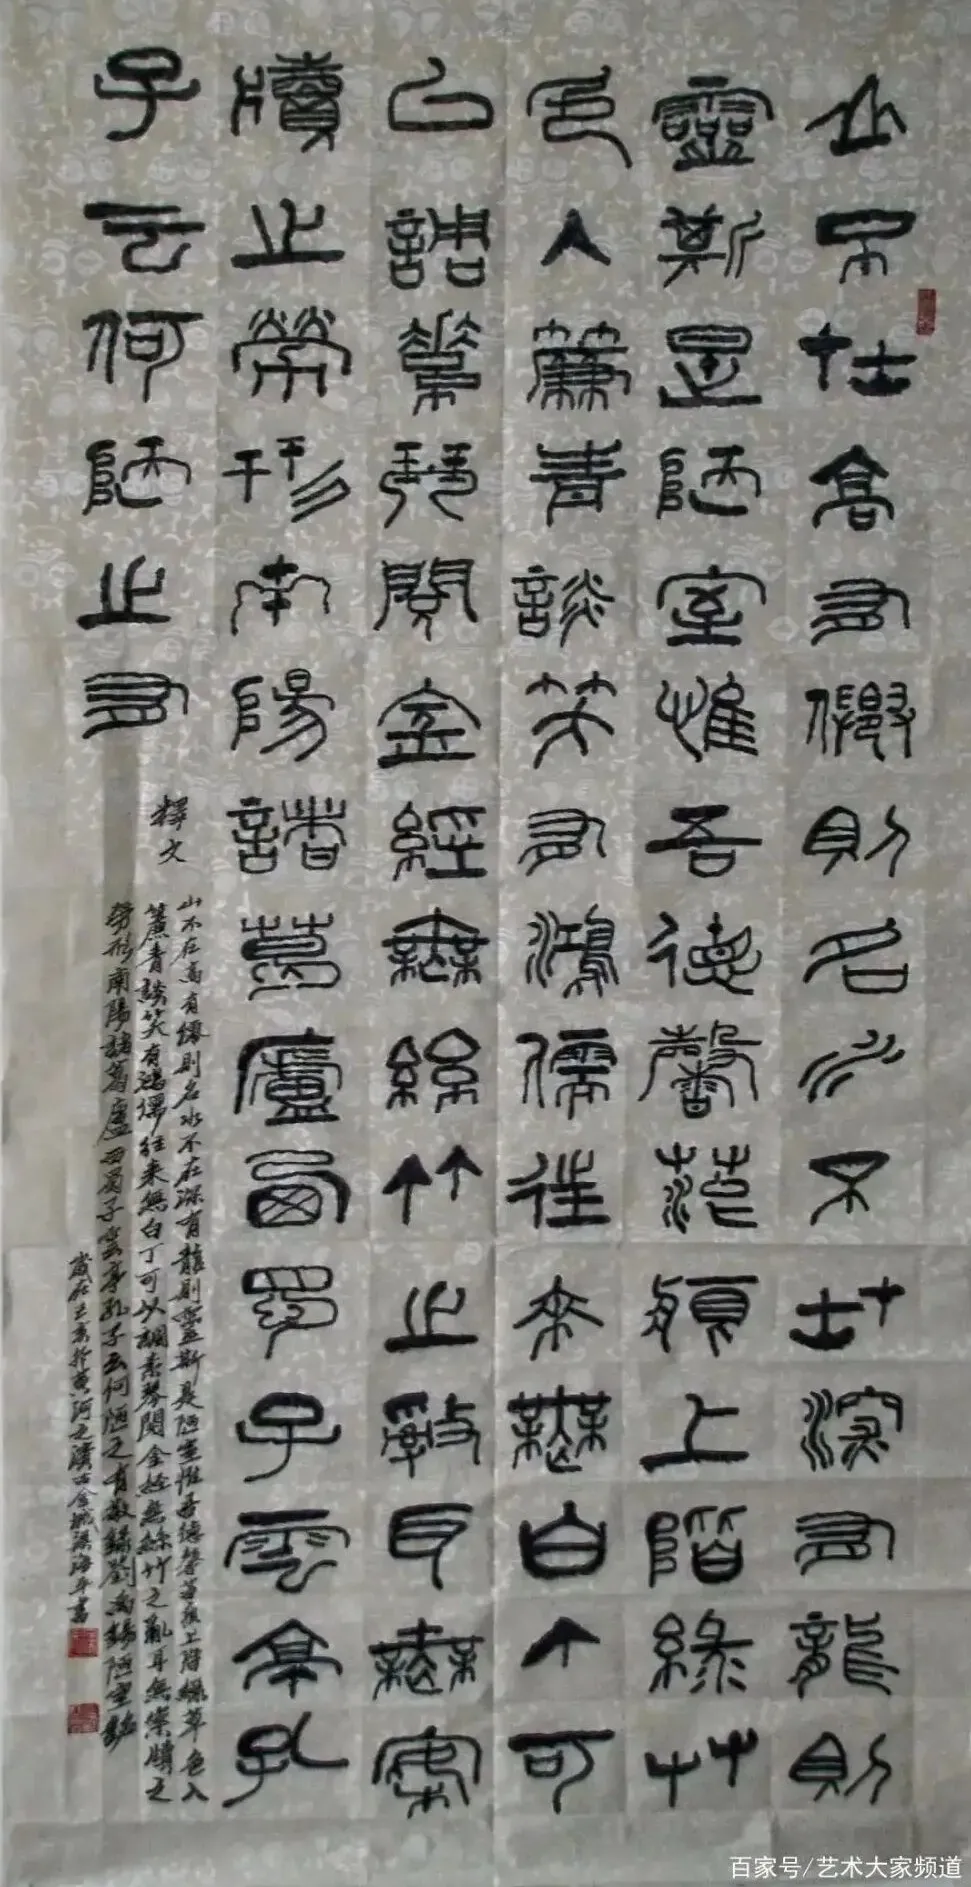 山不在高有僊則名水不在深有龍則
靈斯是陋室惟吾德馨菭痕上階綠艸
色入簾青談笑有鴻儒往來無白丁可
以調素琴閱金經無絲竹之亂耳無案
牘之勞形南陽諸葛廬西蜀子雲亭孔
子云何陋之有
釋文
山不在高有僊則名水不在深有龍則靈斯是陋室惟吾德馨苔痕上階綠草色入
簾青談笑有鴻儒往来無白丁可以調素琴閱金經無絲竹之亂耳無案牘之
勞形南陽諸葛廬西蜀子雲亭孔子云何陋之有敬錄劉禹錫陋室銘
歲在己亥於黄河之濱古金城梁海平書
百家号/艺术大家频道